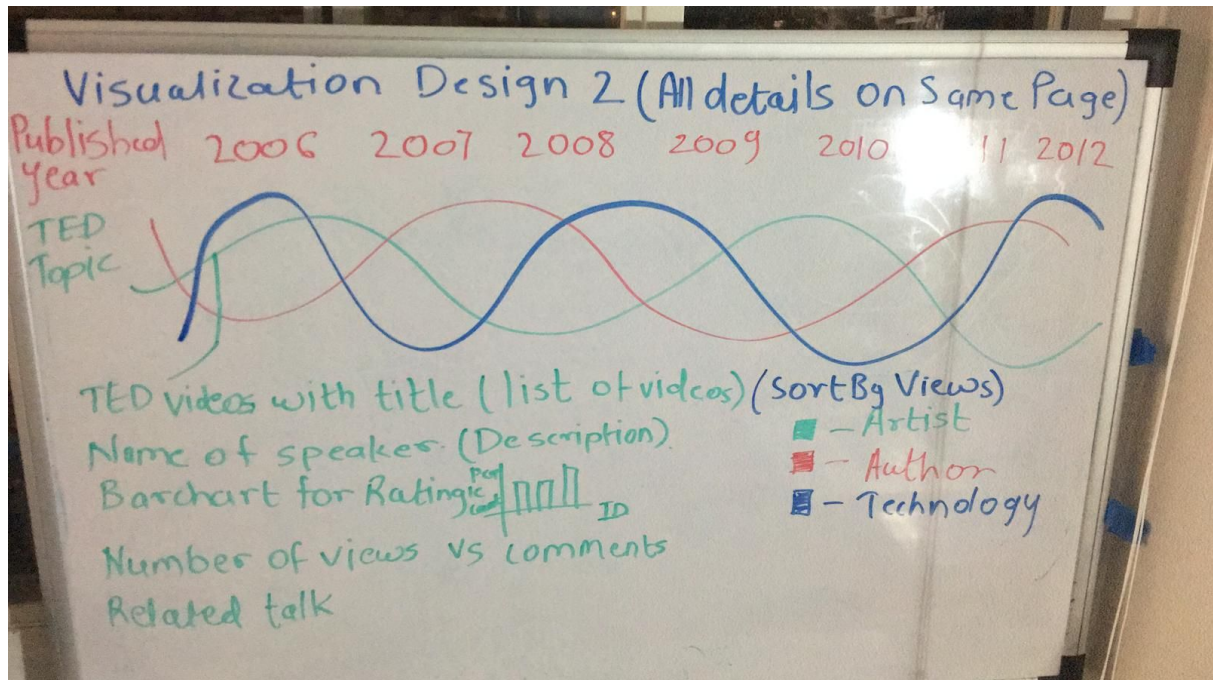 Visualization Design 2 (All details on Same Page)
Published 2006 2007 2008 2009 2010 11 2012
year
TED
Topic
TED videos with title (list of videos) (Sort By Views)
Name of speaker. (Description)
Barchart for Rating ID
Number of views vs comments
Related talk
- Artist
- Author
- Technology